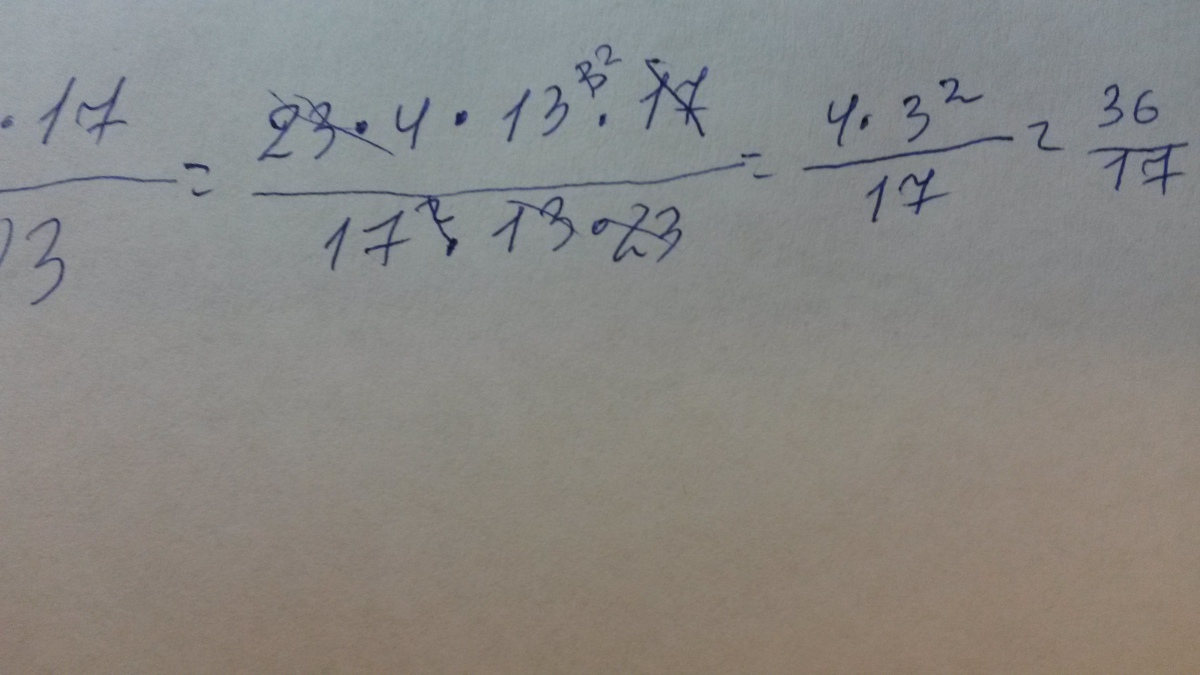 · 17 / 23 = 23 · 4 · 13³² · 17 / 17² · 13 · 23 = 4 · 3² / 17 = 36 / 17